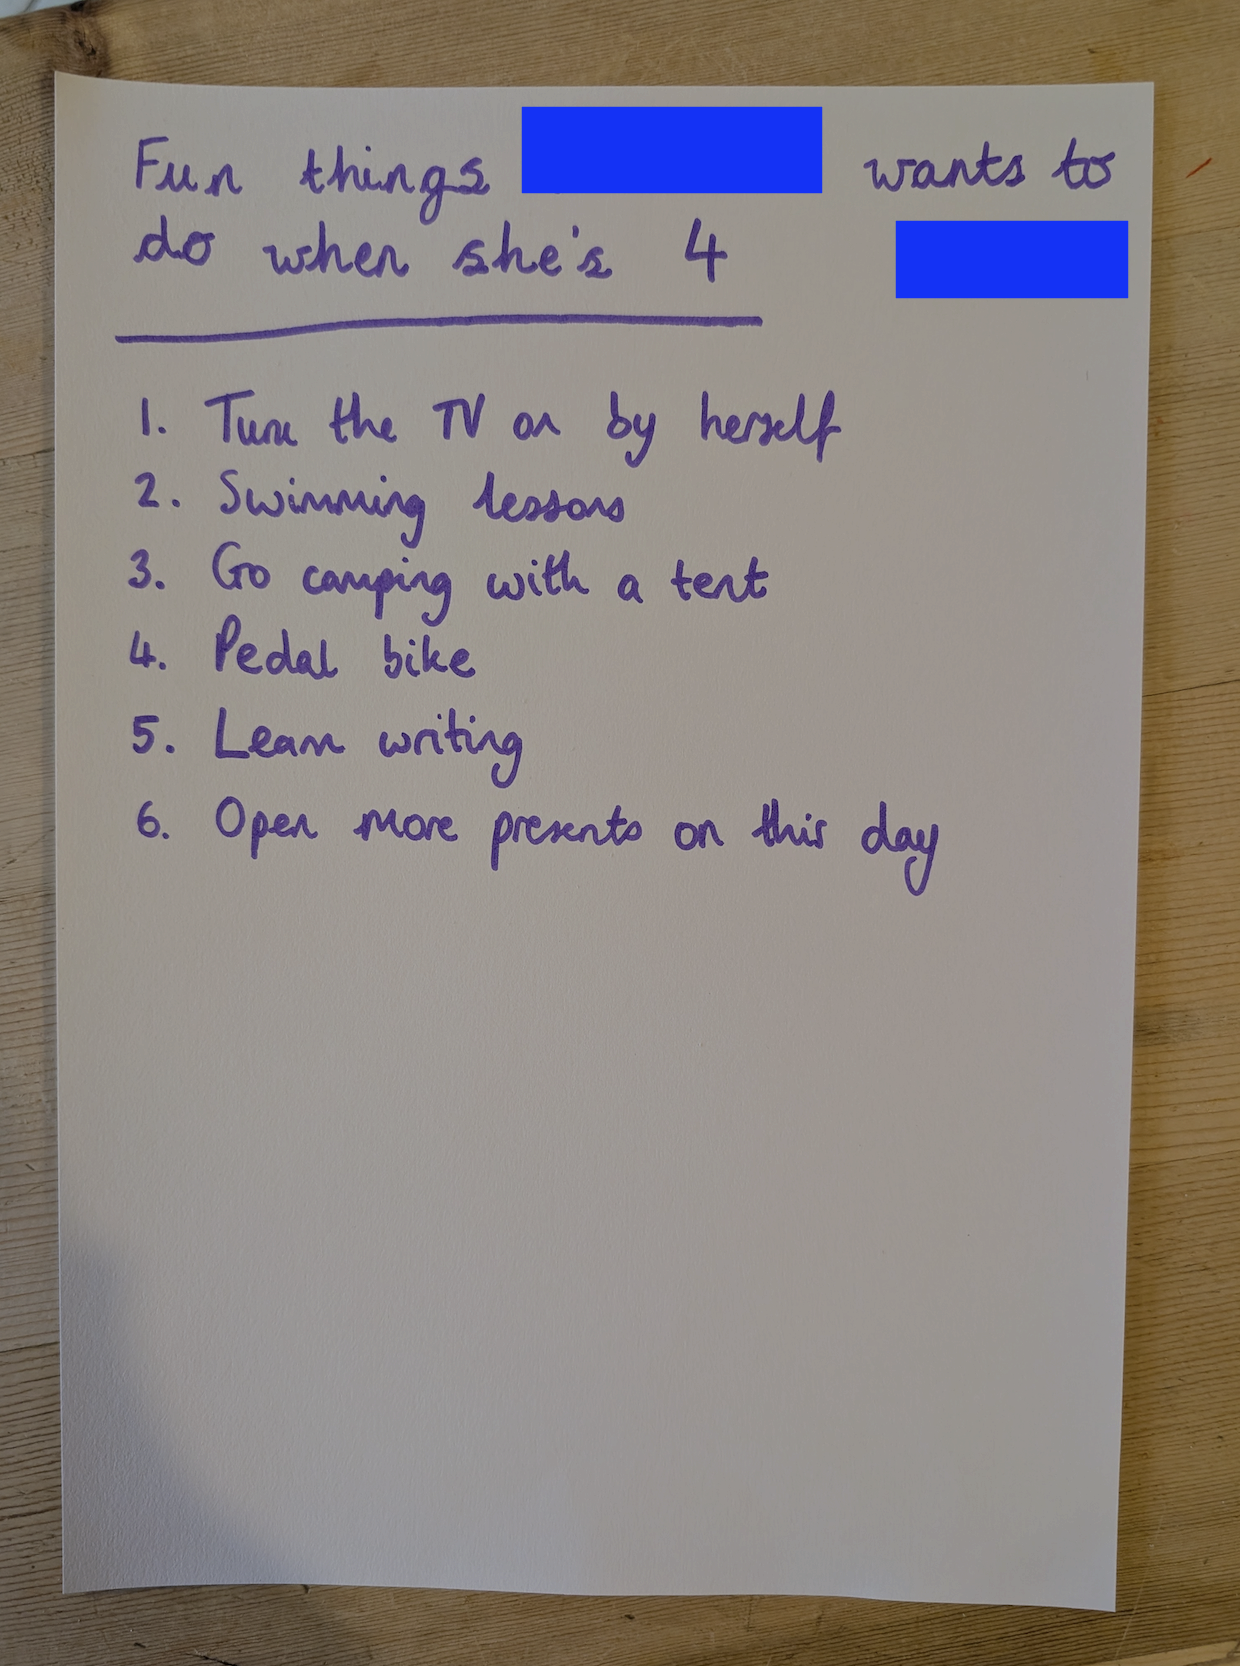 Fun things wants to
do when she's 4
1. Turn the TV on by herself
2. Swimming lessons
3. Go camping with a tent
4. Pedal bike
5. Learn writing
6. Open more presents on this day